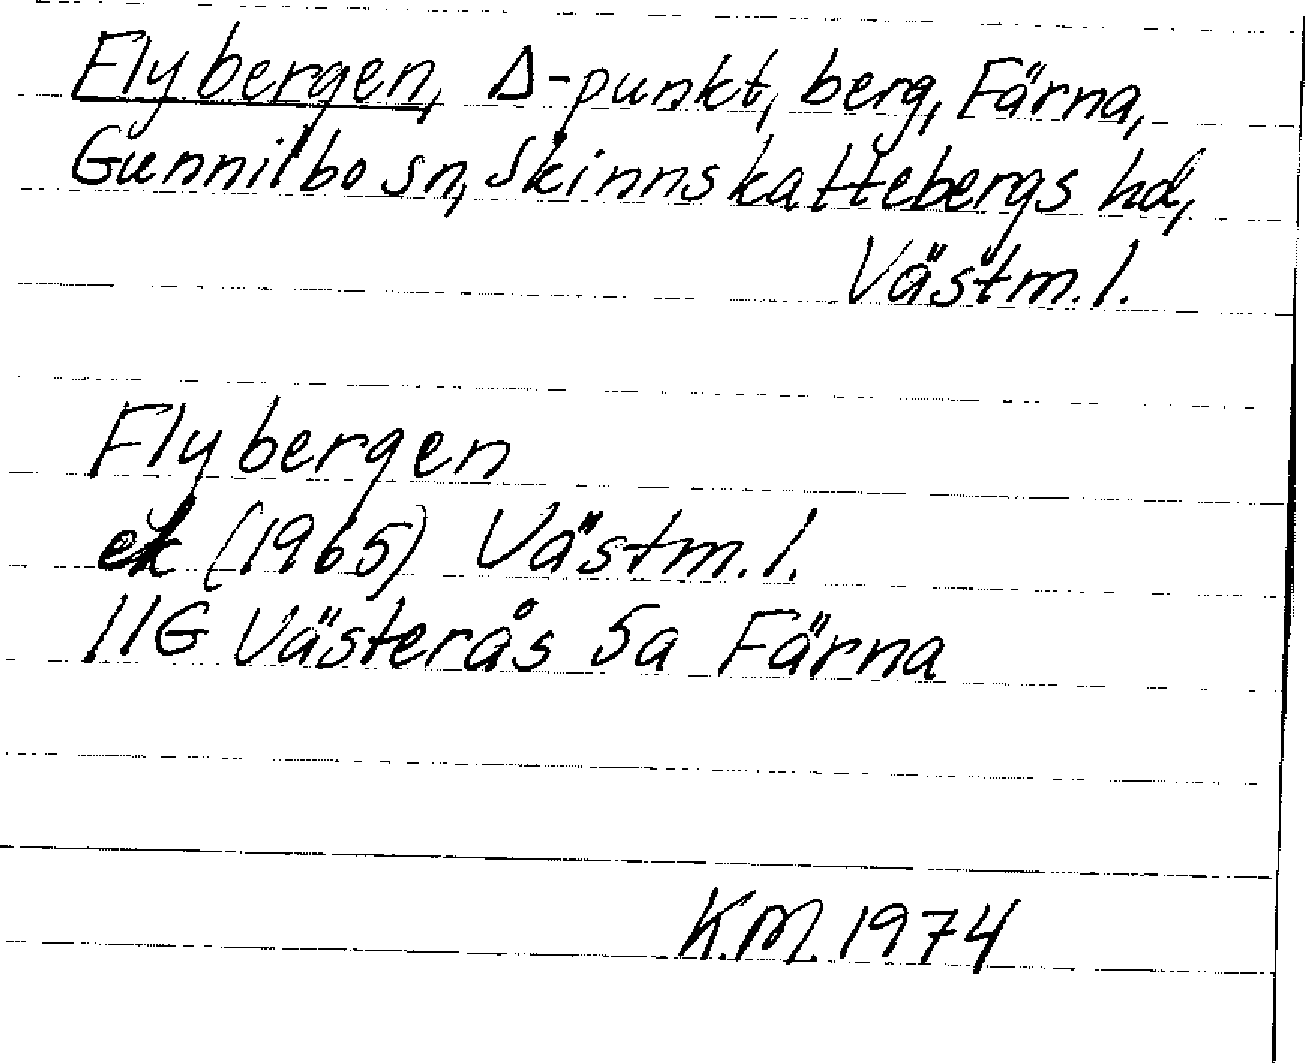 Flybergen, Δ-punkt, berg, Färna,
Gunnilbo sn, Skinnskattebergs hd,
Västm. l.
Flybergen
ek (1965) Västm. l.
11G Västerås 5a Färna
K.M. 1974